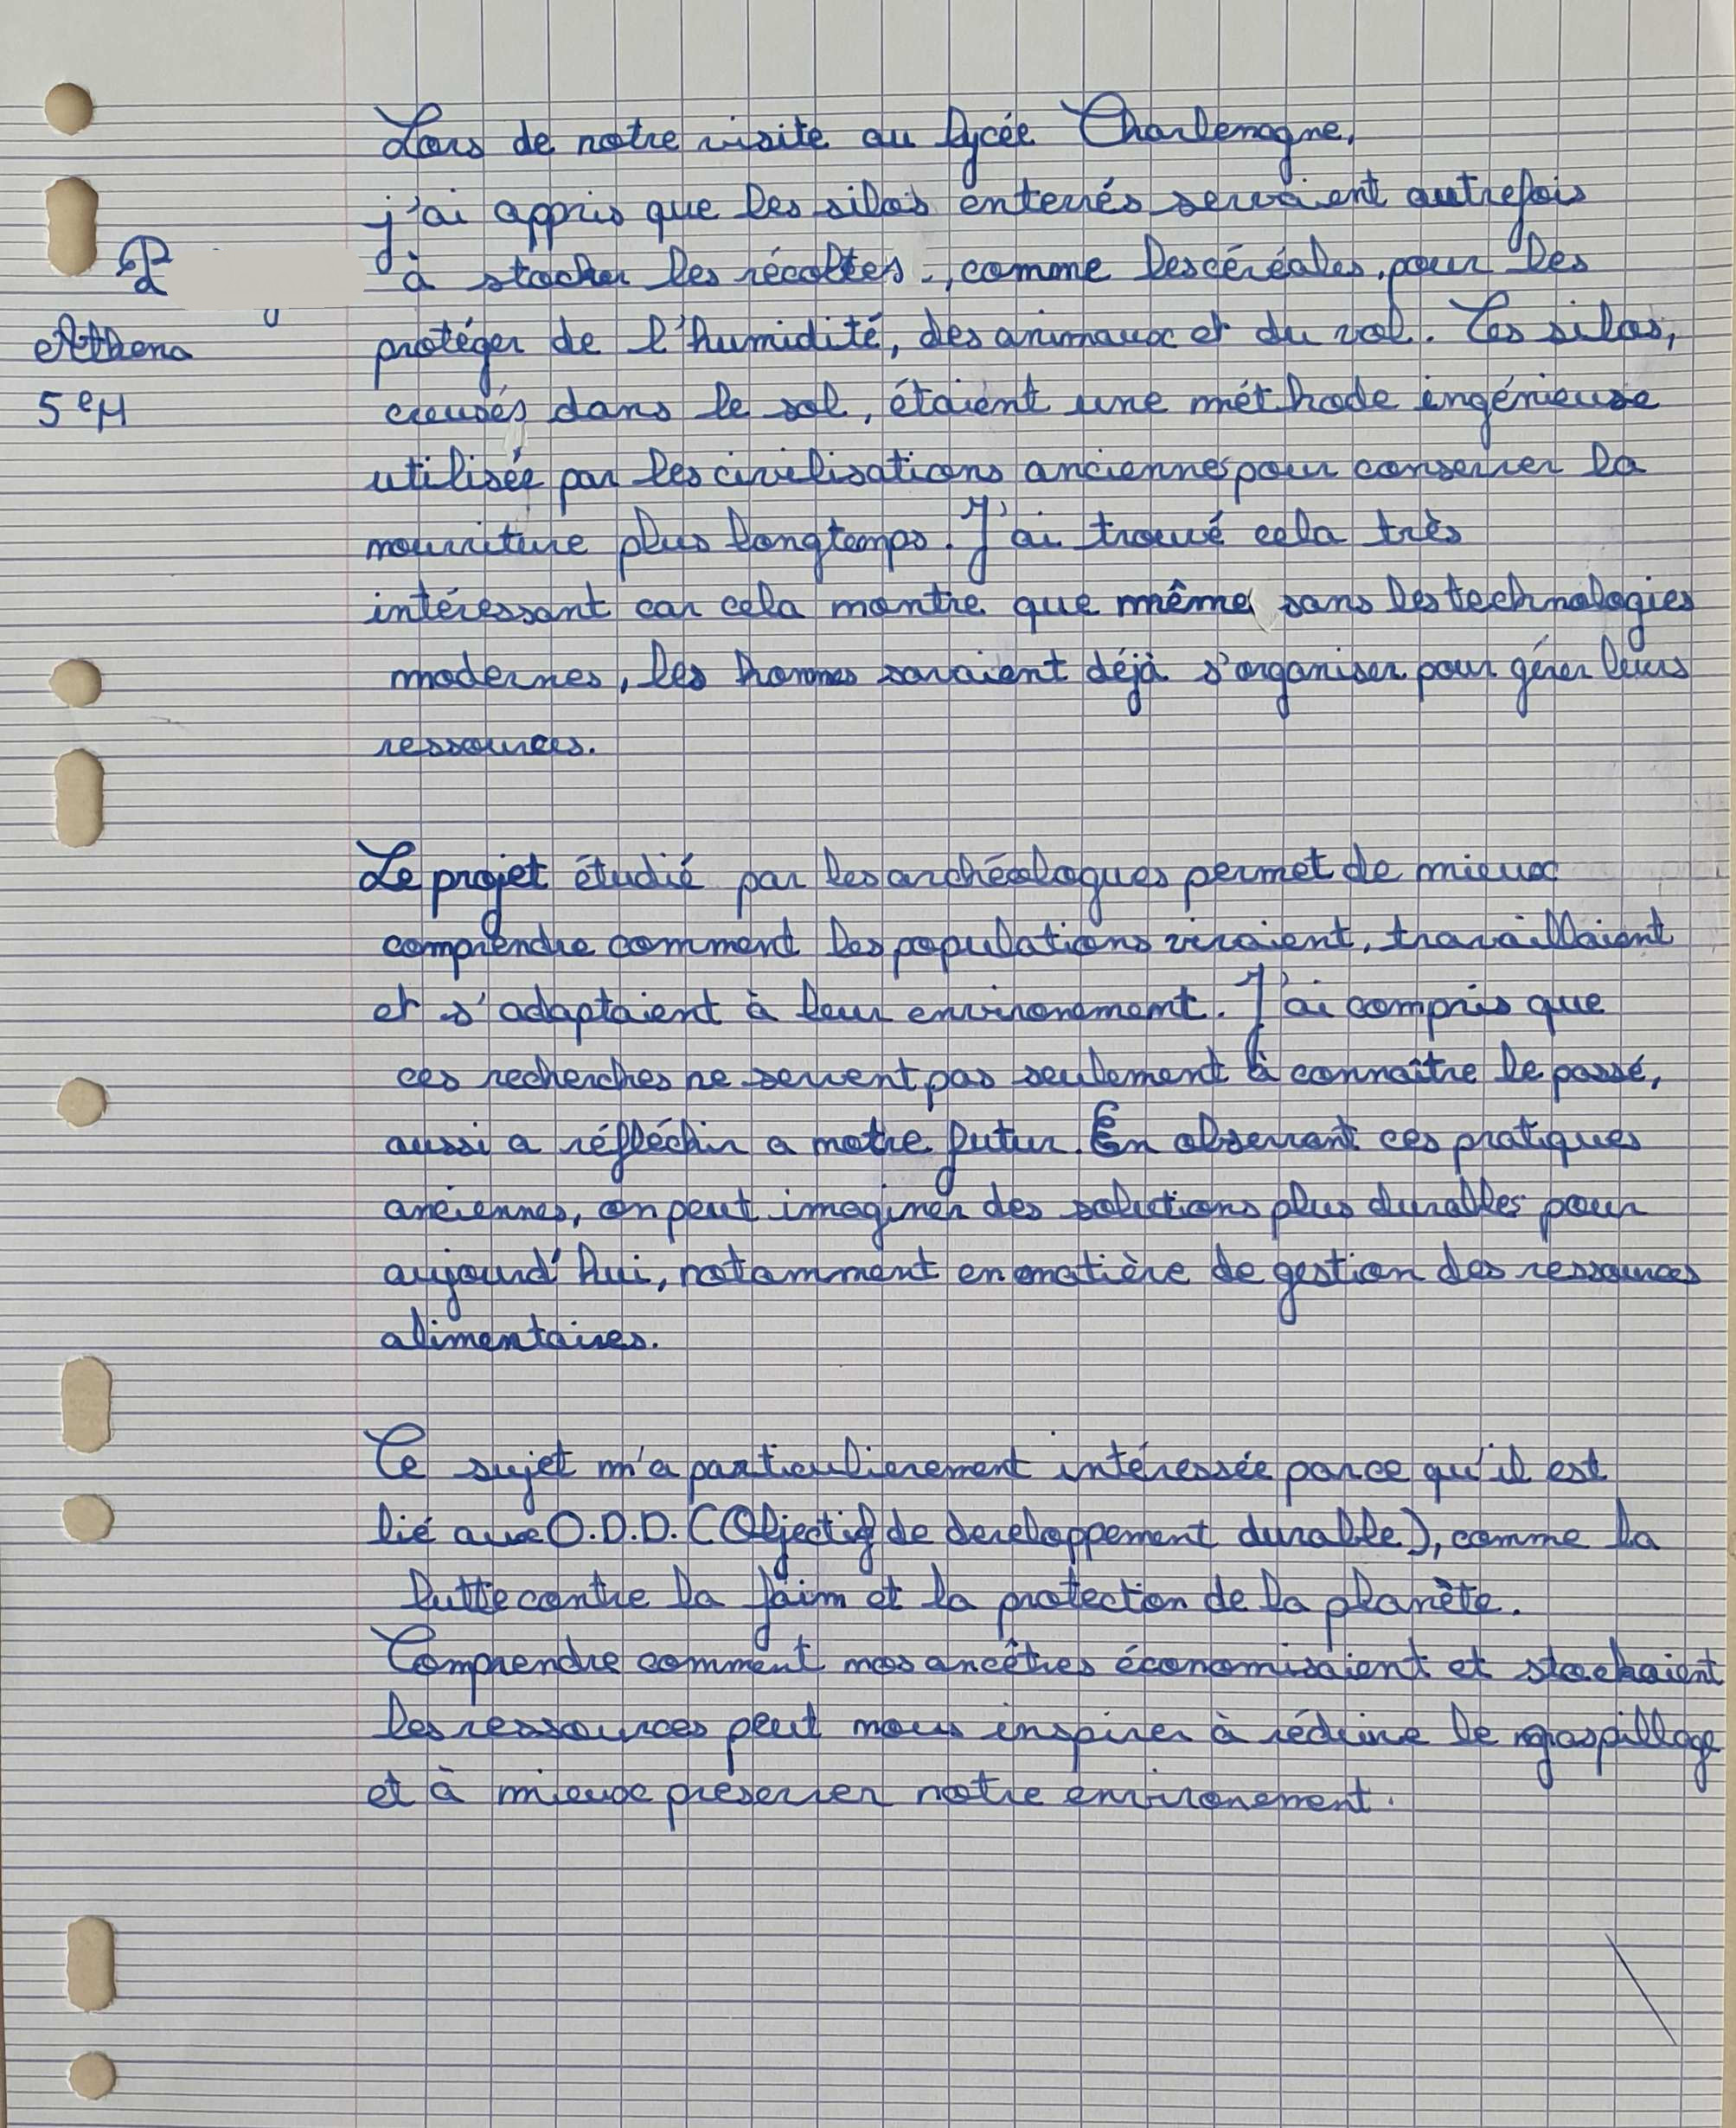 Athena
5eM
Lors de notre visite au lycée Charlemagne,
j'ai appris que les silos enterrés servaient autrefois
à stocker les récoltes, comme les céréales, pour les
protéger de l'humidité, des animaux et du vol. Ces silos,
creusés dans le sol, étaient une méthode ingénieuse
utilisée par les civilisations anciennes pour conserver la
nourriture plus longtemps. J'ai trouvé cela très
intéressant car cela montre que même sans les technologies
modernes, les hommes savaient déjà s'organiser pour gérer leurs
ressources.
Le projet étudié par les archéologues permet de mieux
comprendre comment les populations vivaient, travaillaient
et s'adaptaient à leur environement. J'ai compris que
ces recherches ne servent pas seulement à connaître le passé,
aussi a réfléchir a notre futur. En observant ces pratiques
anciennes, on peut imaginer des solutions plus durables pour
aujourd'hui, notamment en matière de gestion des ressources
alimentaires.
Ce sujet m'a particulierement intéressée parce qu'il est
lié aux O.D.D. (Objectif de developpement durable), comme la
lutte contre la faim et la protection de la planète.
Comprendre comment nos ancêtres économisaient et stockaient
les ressources peut nous inspirer à réduire le gaspillage
et à mieux préserver notre environement.